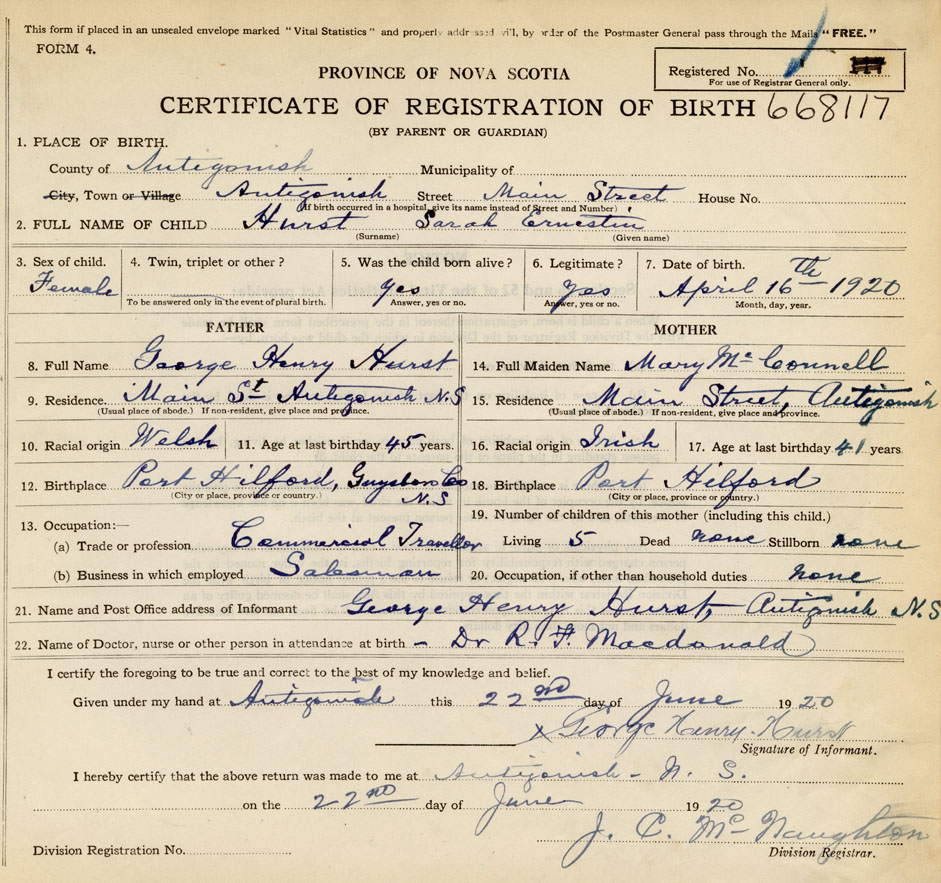 This form if placed in an unsealed envelope marked "Vital Statistics" and properly addressed will, by order of the Postmaster General pass through the Mails "FREE."
FORM 4.
PROVINCE OF NOVA SCOTIA
Registered No.
For use of Registrar General only.
CERTIFICATE OF REGISTRATION OF BIRTH 668117
(BY PARENT OR GUARDIAN)
1. PLACE OF BIRTH.
County of Antigonish Municipality of
City, Town or Village Antigonish Street Main Street House No.
(If birth occurred in a hospital, give its name instead of Street and Number)
2. FULL NAME OF CHILD Hurst Sarah Ernestin
(Surname) (Given name)
3. Sex of child. 4. Twin, triplet or other? 5. Was the child born alive? 6. Legitimate? 7. Date of birth.
Female yes yes April 16th 1920
To be answered only in the event of plural birth. Answer, yes or no. Answer, yes or no. Month, day, year.
FATHER MOTHER
8. Full Name George Henry Hurst 14. Full Maiden Name Mary Mc Connell
9. Residence. Main St Antigonish N.S 15. Residence Main Street, Antigonish
(Usual place of abode.) If non-resident, give place and province. (Usual place of abode.) If non-resident, give place and province.
10. Racial origin Welsh 11. Age at last birthday 45 years. 16. Racial origin Irish 17. Age at last birthday 41 years
12. Birthplace Port Hilford, Guysboro Co N.S 18. Birthplace Port Hilford
(City or place, province or country.) (City or place, province or country.)
13. Occupation:— 19. Number of children of this mother (including this child.)
(a) Trade or profession Commercial Traveller Living 5 Dead none Stillborn none
(b) Business in which employed Salesman 20. Occupation, if other than household duties none
21. Name and Post Office address of Informant George Henry Hurst, Antigonish N.S
22. Name of Doctor, nurse or other person in attendance at birth – Dr R. F. Macdonald
I certify the foregoing to be true and correct to the best of my knowledge and belief.
Given under my hand at Antigonish this 22nd day of June 1920
x George Henry Hurst
Signature of Informant.
I hereby certify that the above return was made to me at Antigonish – N. S.
on the 22nd day of June 1920
J. C. Mc Naughton
Division Registration No. Division Registrar.